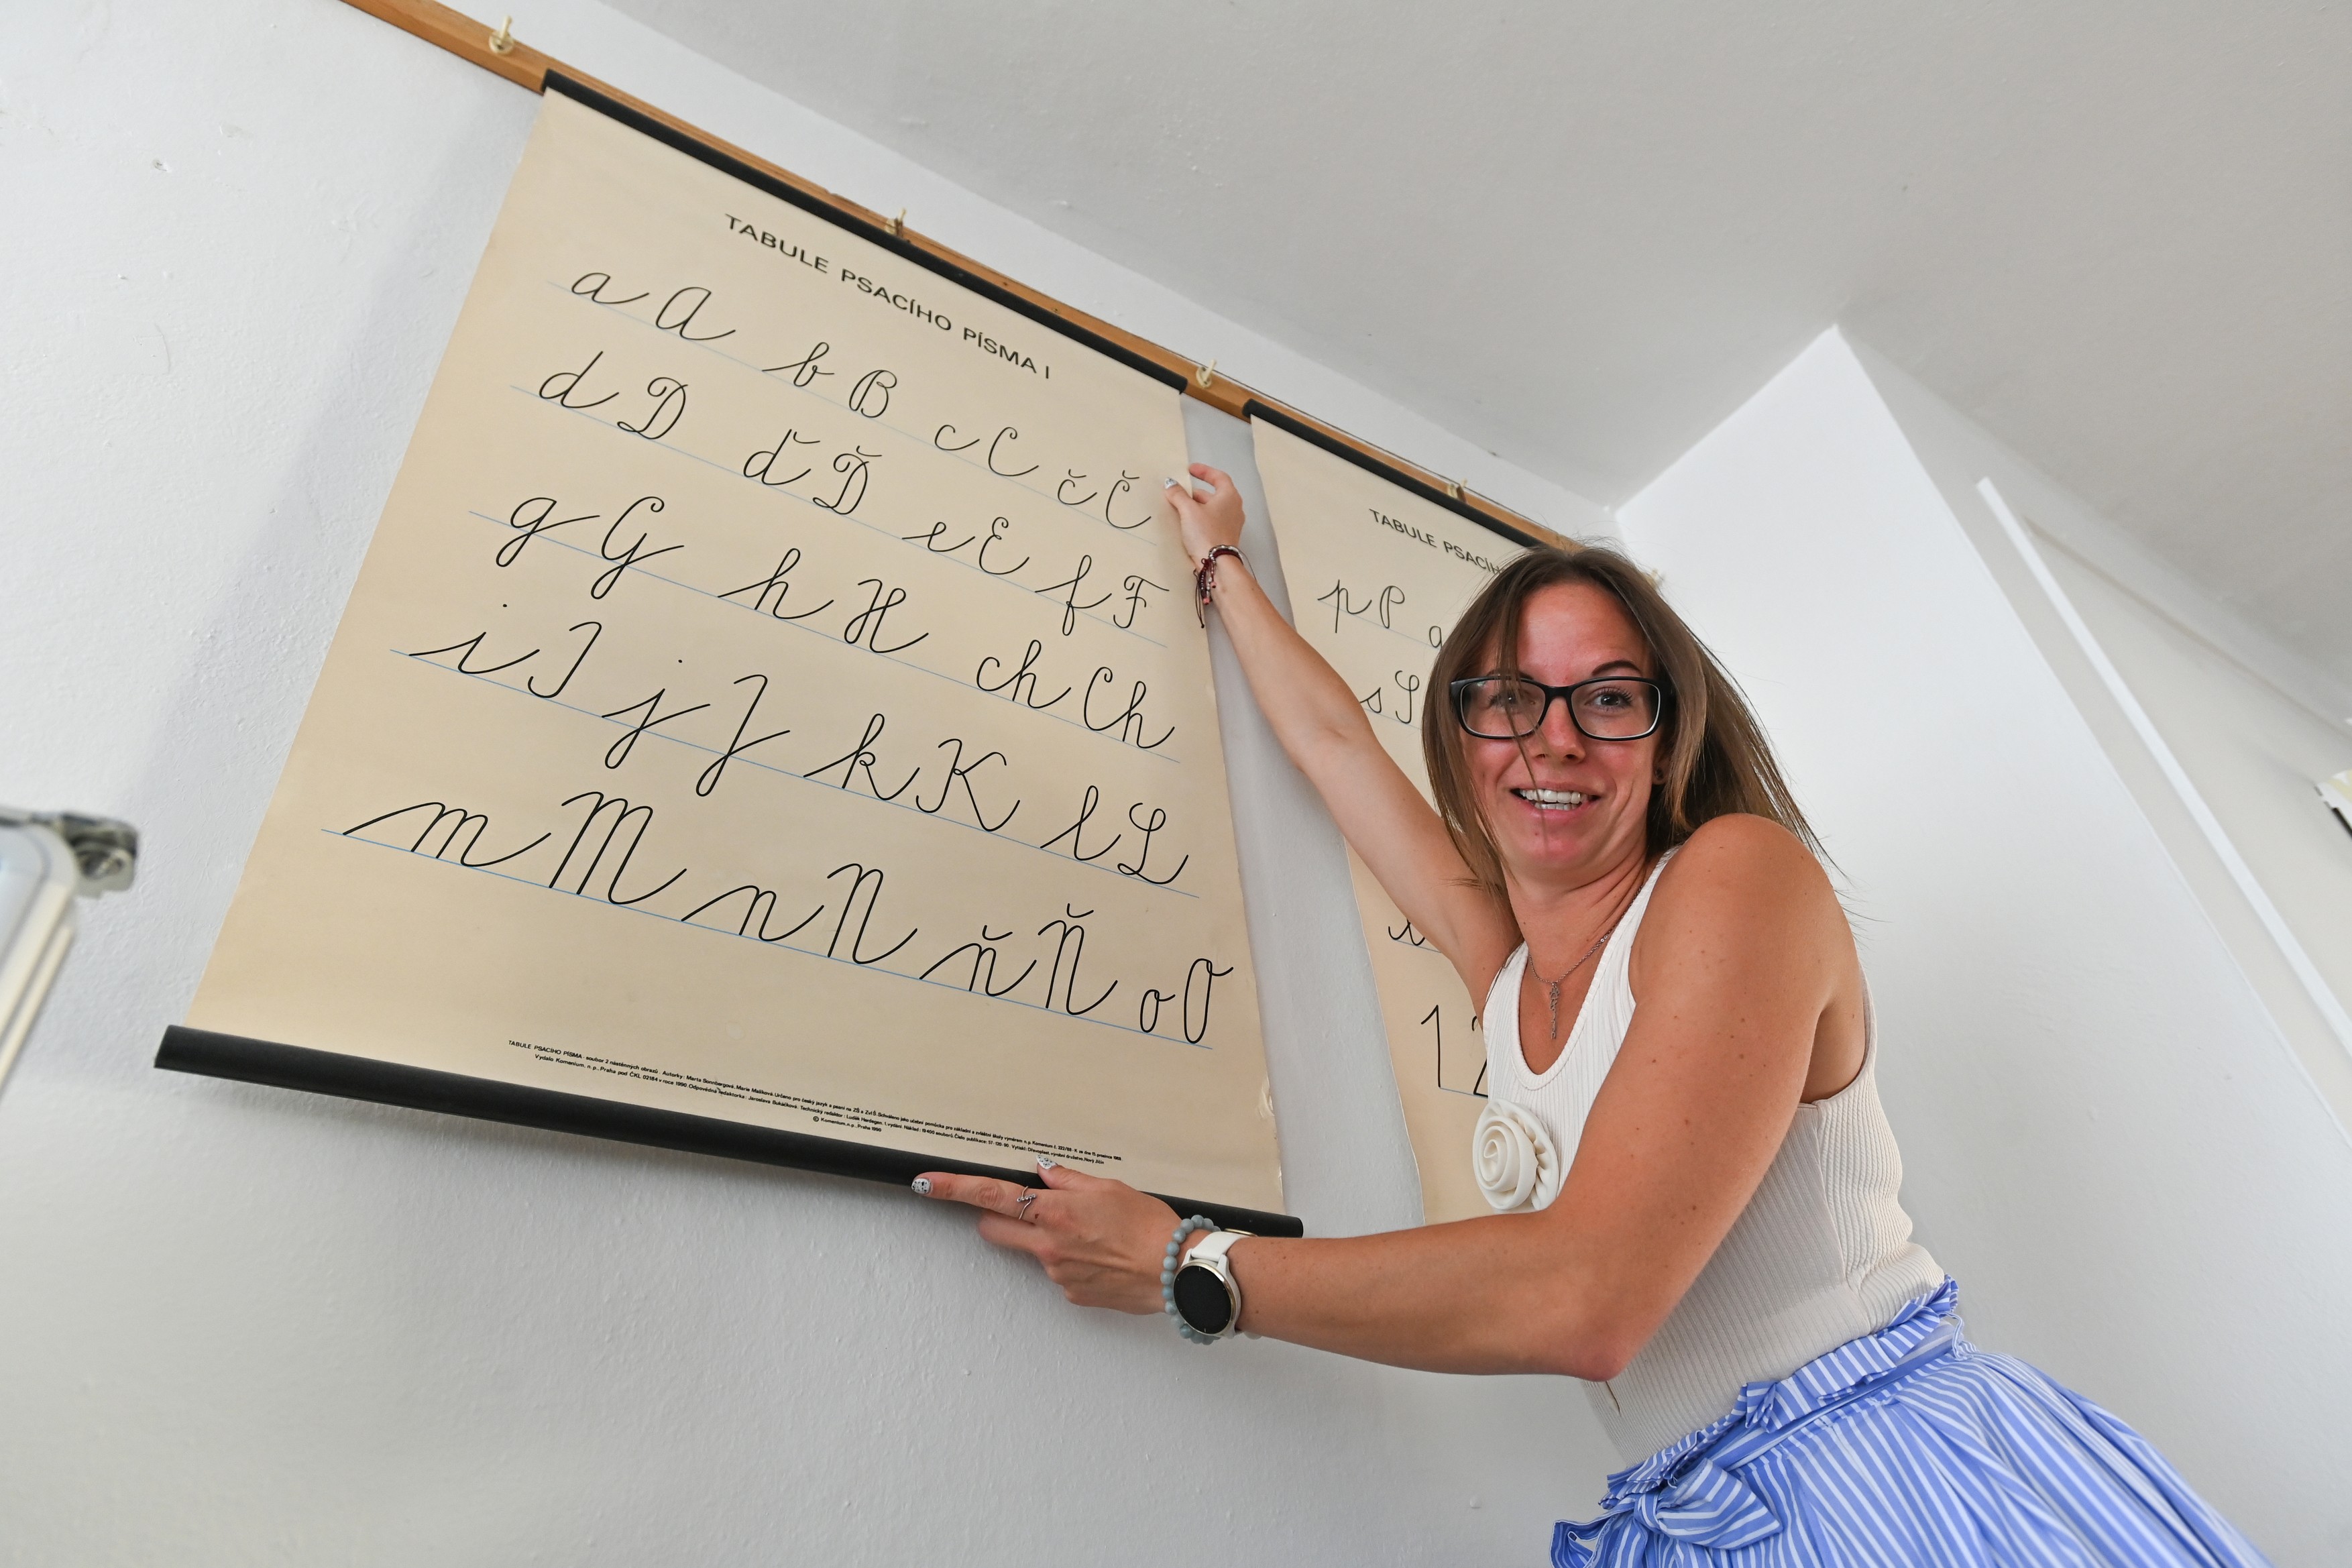 TABULE PSACÍHO PÍSMA I
a A b B c C č Č
d D ď Ď e E f F
g G h H ch Ch
i I j J k K l L
m M n N ň Ň o O
TABULE PSACÍHO PÍSMA : soubor 2 nástěnných obrazů
Vydalo Komenium, n. p., Praha pod ČKL 02184 v roce 1990
© Komenium, n. p., Praha 1990
TABULE PSACÍH
p P
s S
1 2